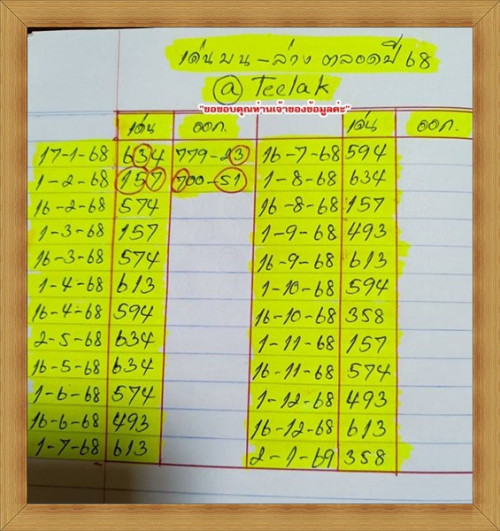 เด่นบน-ล่าง ตลอดปี 68
@ Teelak
"ขอขอบคุณท่านเจ้าของข้อมูลค่ะ"
เด่น ออก. เด่น ออก.
17-1-68 634 779-23 16-7-68 594
1-2-68 157 700-51 1-8-68 634
16-2-68 574 16-8-68 157
1-3-68 157 1-9-68 493
16-3-68 574 16-9-68 613
1-4-68 613 1-10-68 594
16-4-68 594 16-10-68 358
2-5-68 634 1-11-68 157
16-5-68 634 16-11-68 574
1-6-68 574 1-12-68 493
16-6-68 493 16-12-68 613
1-7-68 613 2-1-69 358